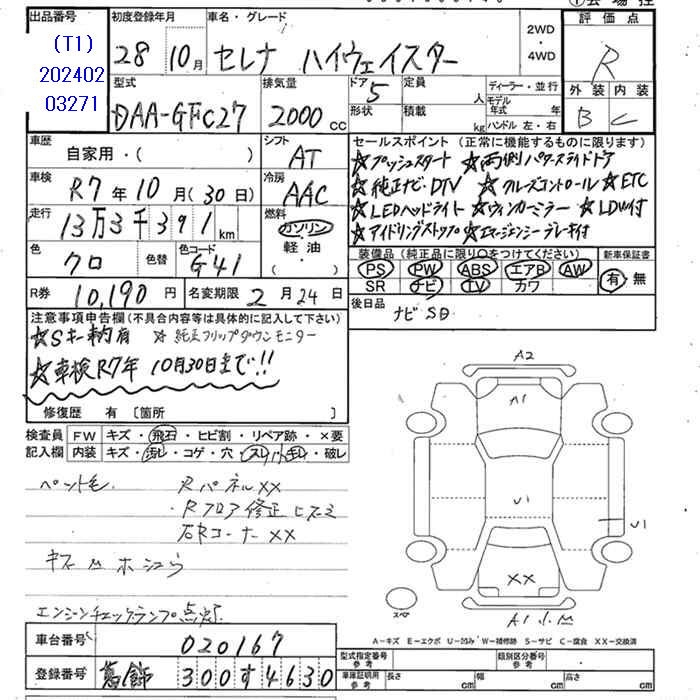 出品番号 初度登録年月 車名・グレード 評価点
(T1) 202402 03271
28 10月 セレナ ハイウェイスター 2WD ・ 4WD R
外装 内装
B C
型式 排気量 ドア 定員 ディーラー・並行
DAA-GFC27 2000cc 5 人 モデル年式 年
形状 積載 kg ハンドル 左・右
車歴 シフト セールスポイント (正常に機能するものに限ります)
自家用・( ) AT ☆プッシュスタート ☆両側パワースライドドア
車検 冷房 ☆純正ナビ・DTV ☆クルーズコントロール ☆ETC
R7年10月(30日) AAC ☆LEDヘッドライト ☆ウィンカーミラー ☆LDW付
走行 燃料 ☆アイドリングストップ ☆エマージェンシーブレーキ付
13万3千391km ガソリン・軽油・( )
色 色替 色コード 装備品 (純正品に限り○をつけてください) 新車保証書
クロ G41 PS PW ABS エアB AW 有・無
SR ナビ TV カワ
R券 10,190円 名変期限 2月24日 後日品 ナビSD
注意事項申告欄(不具合内容等は具体的に記入して下さい)
☆Sキー 有 ☆純正フリップダウンモニター
☆車検R7年10月30日まで!!
修復歴 有 〔箇所 〕
検査員 FW キズ・飛石・ヒビ割・リペア跡・×要
記入欄 内装 キズ・汚レ・コゲ・穴・スレ・破レ
ペット毛 RパネルXX
・Rフロア修正ヒズミ
右RコーナーXX
エンジンチェックランプ点灯
A2
A1
U1
U1
XX
スペア
A1
A-キズ E-エクボ U-凹み W-補修跡 S-サビ C-腐食 XX-交換済
車台番号 020167
型式指定番号 参考 類別区分番号 参考
登録番号 葛飾 300す4630
車庫証明用 参考 長さ cm 幅 cm 高さ cm